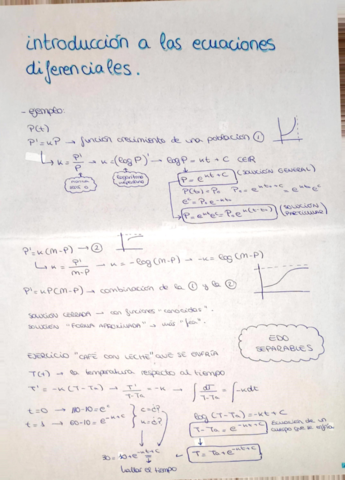 introducción a las ecuaciones
diferenciales.
- ejemplo:
P(t)
P' = kP → función crecimiento de una población ①
↳ k = P'/P → k = (log P)' → log P = kt + C C∈ℝ
P = e^{kt+C} (SOLUCIÓN GENERAL)
P(t₀) = P₀ P₀ = e^{kt₀+C} = e^{kt₀} e^C
e^C = P₀ e^{-kt₀}
P = e^{kt} e^C = P₀ e^{k(t-t₀)} (SOLUCIÓN PARTICULAR)
P' = k(M-P) → ②
↳ k = P'/(M-P) → k = -log(M-P) → -k = log(M-P)
P' = kP(M-P) → combinación de la ① y la ②
SOLUCIÓN CERRADA → con funciones "conocidas".
SOLUCIÓN "FORMA APROXIMADA" → más "fea".
EDO
SEPARABLES
EJERCICIO "CAFÉ CON LECHE" QUE SE ENFRÍA
T(t) → la temperatura respecto al tiempo
T' = -k(T-Ta) → T'/(T-Ta) = -k → ∫ dT/(T-Ta) = ∫ -kdt
log(T-Ta) = -kt + C
T-Ta = e^{-kt+C} Ecuación de un cuerpo que se enfría
T = Ta + e^{-kt+C}
hallar el tiempo